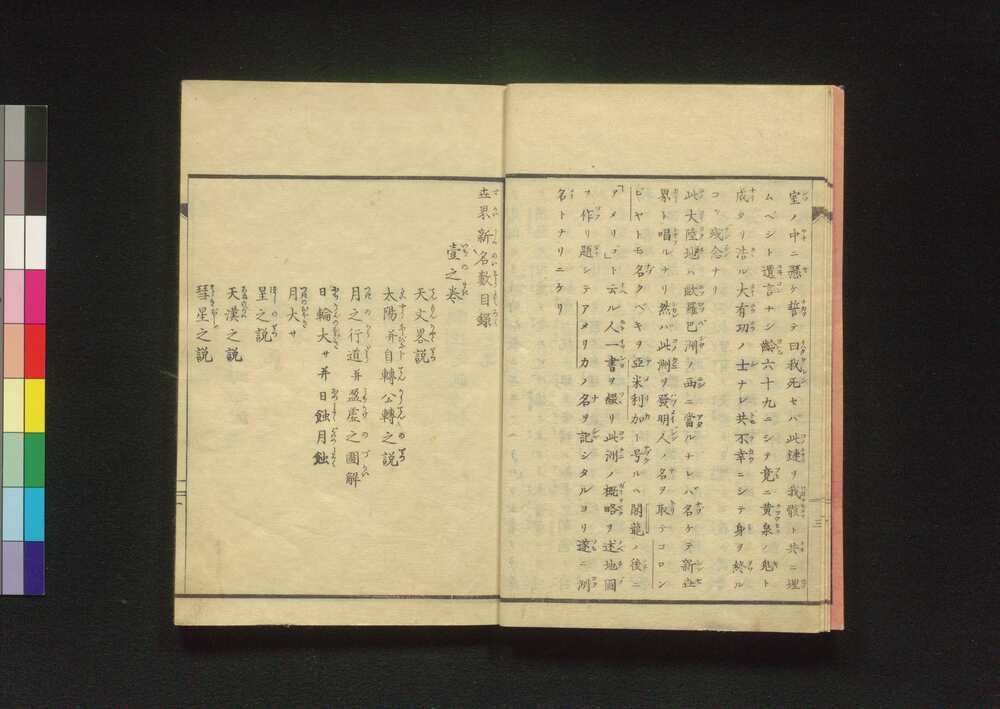 室ノ中ニ懸ケ誓テ曰我死セバ此鏈リ我骸ト共ニ埋
ムベシト遺言ナシ齢六十九ニシテ竟ニ黄泉ノ鬼ト
成タリ浩ル大有功ノ士ナレ共不幸ニシテ身ヲ終ル
コソ残念ナリ
此大陸地ハ歐羅巴洲ノ西ニ當ルナレハ名ケテ新世
界ト唱ルナリ然ハ此洲ヲ發明人ノ名ヲ取テコロン
ビヤトモ名クベキヲ亞米利加ト号ルハ閣龍ノ後ニ
「アメリゴ」ト云ル人一書ヲ綴リ此洲ノ概略ヲ述地圖
ヲ作リ題シテアメリカノ名ヲ記シタルヨリ遂ニ洲
名トナリニケリ
三
世界新名數目録
壹之巻
天文畧説
太陽并自轉公轉之説
月之行道并盈虚之圖解
日輪大サ并日蝕月蝕
月大サ
星之説
天漢之説
彗星之説